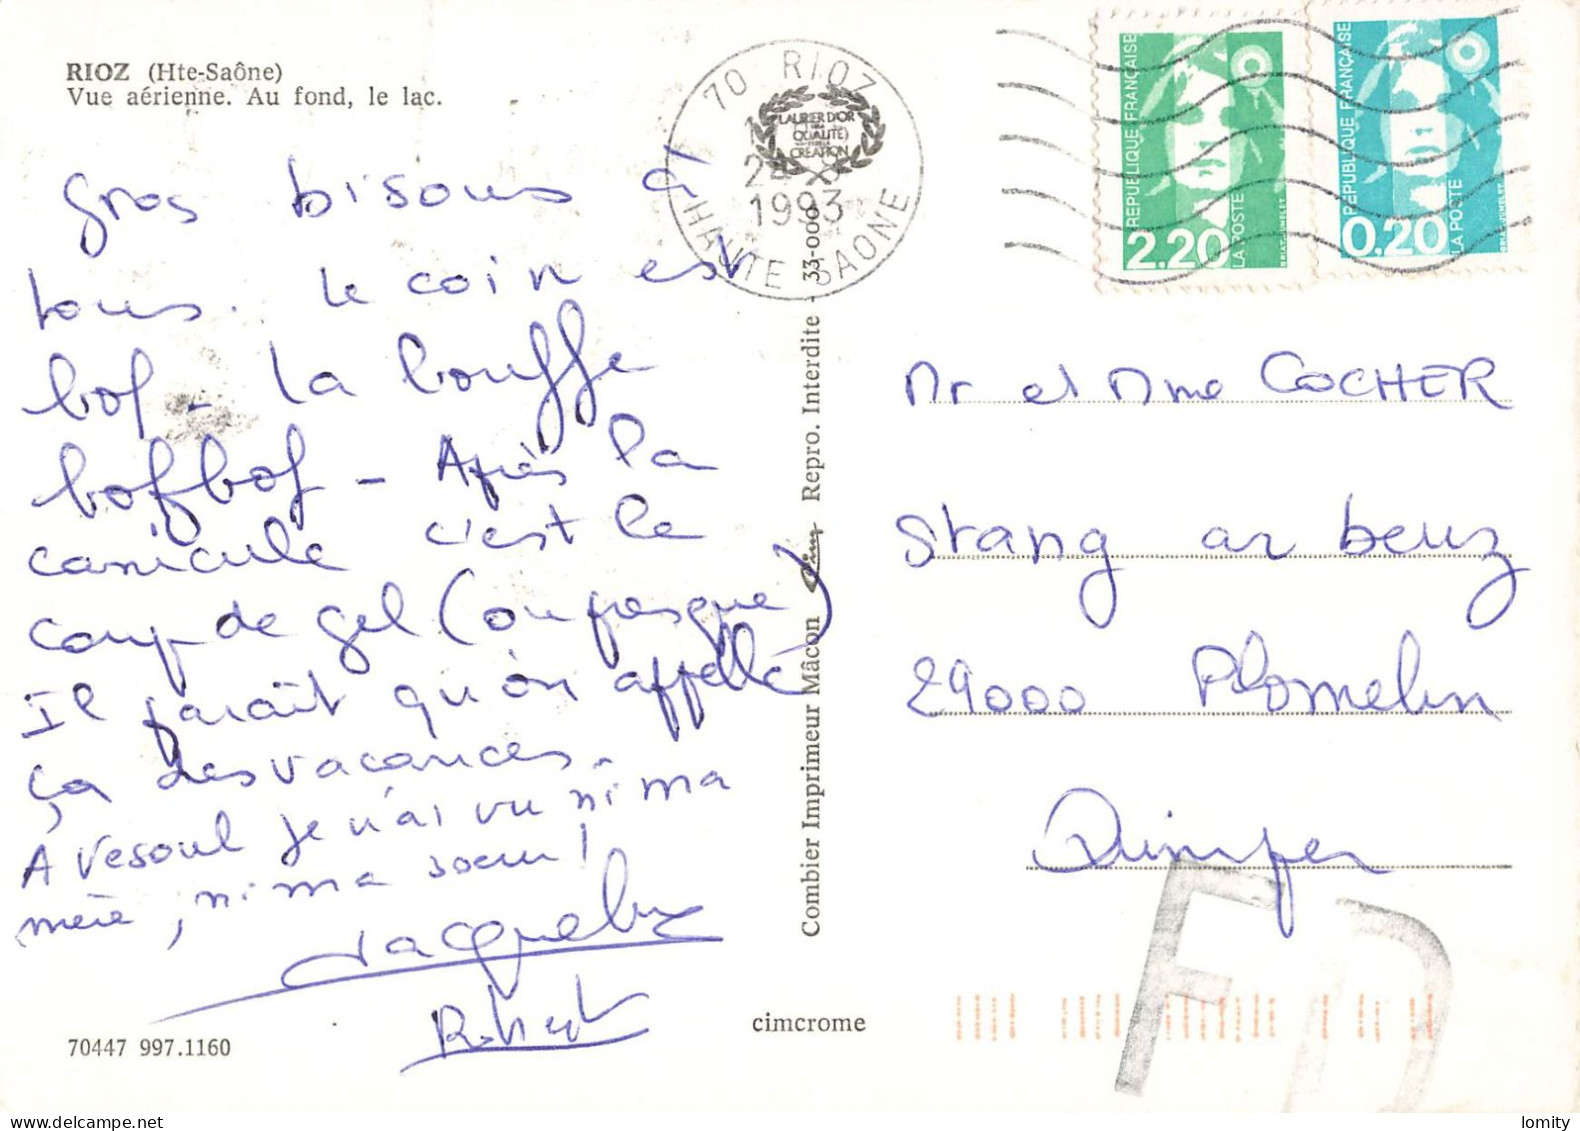 RIOZ (Hte-Saône)
Vue aérienne. Au fond, le lac.
Gros bisous à
tous. Le coin est
bof - la bouffe
bof bof - Après la
canicule c'est le
coup de gel (ou presque)
Il paraît qu'on appelle
ça des vacances.
A Vesoul je n'ai vu ni ma
mère, ni ma soeur !
Jacqueline
70447 997.1160
cimcrome
Combier Imprimeur Mâcon Repro. Interdite - 33-000
LAURIER D'OR
QUALITÉ
CRÉATION
70 RIOZ
1993
HAUTE SAONE
REPUBLIQUE FRANÇAISE
2.20
LA POSTE
RÉPUBLIQUE FRANÇAISE
0,20
LA POSTE
Mr et Mme COCHER
Stang ar beuz
29000 Plomelin
Quimper
lomity